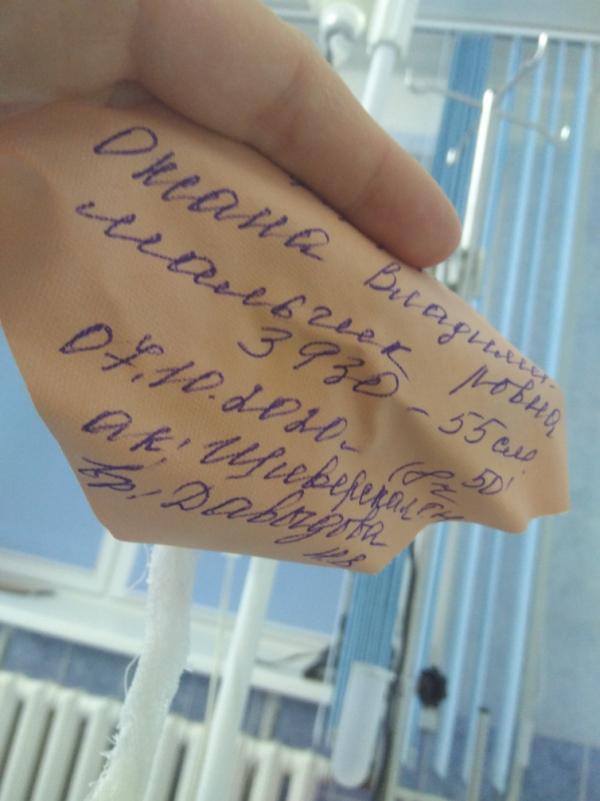 Оксана Владими-
ровна
мальчик
3930 - 55см
07.10.2020.
50'
ак. Щиверская
вр. Давыдова